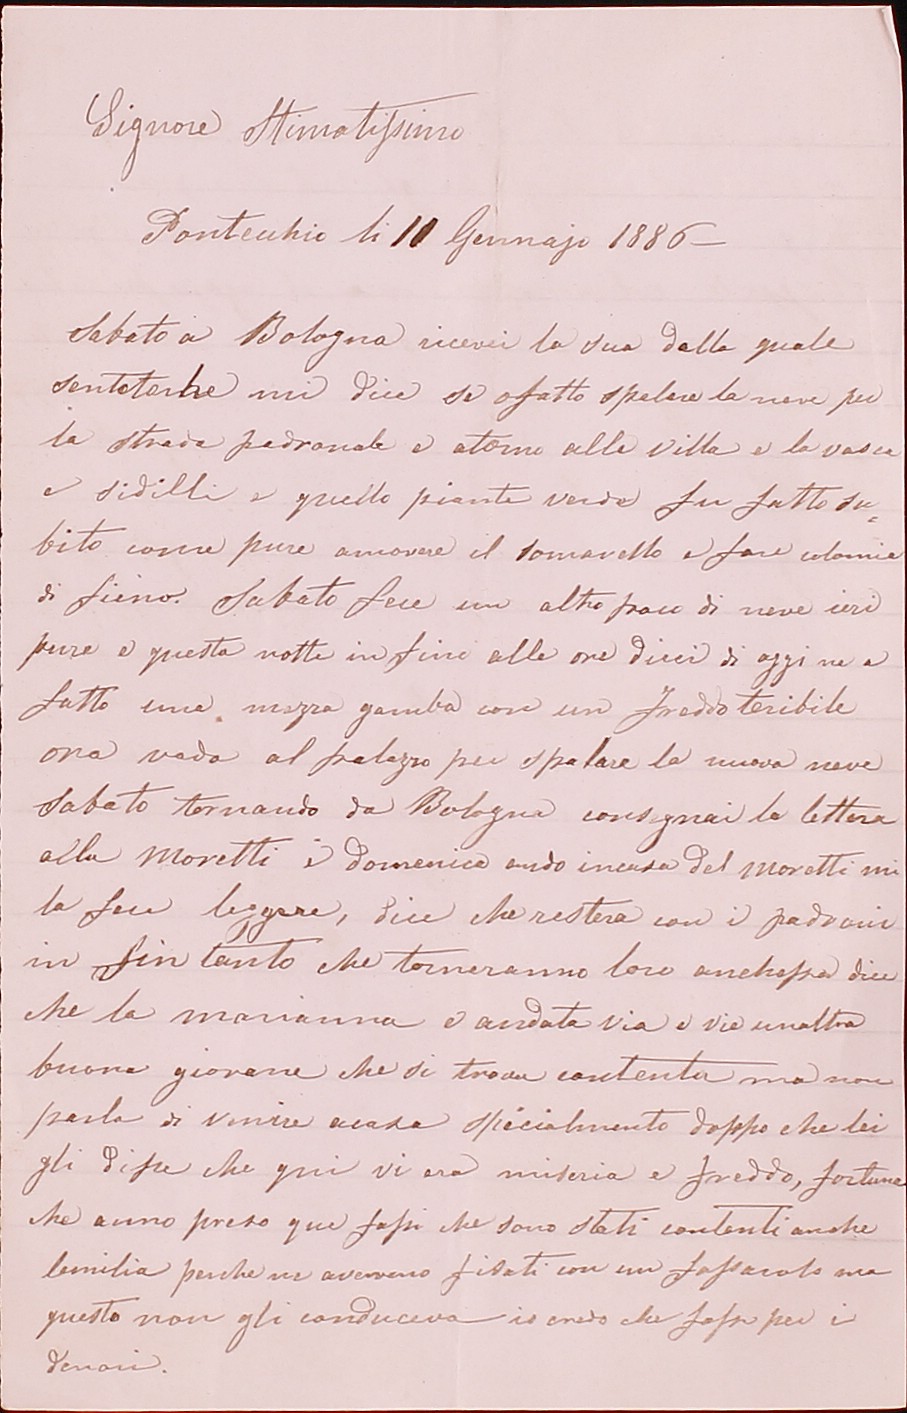 Signore Stimatissimo
Pontecchio li 11 Gennajo 1886
Sabato a Bologna ricevei la sua dalla quale
sentoterche mi dice se ofatto spalare la neve per
la strada padronale e atorno alla villa e la vasca
e sidilli e quello piante verde fu fatto su=
bito come pure amovere il somarello e fare
di fieno. Sabato fece un altro poco di neve ieri
pure e questa notte in fino alle ore dieci di oggi ne a
fatto una mezza gamba con un freddo teribile
ora vado al palazzo per spalare la nuova neve
Sabato tornando da Bologna consegnai la lettera
alla Moretti e Domenica ando incasa del Moretti mi
la fece leggere, dice che restera con i padroni
in fin tanto che torneranno loro anchessa dice
che la marianna e andata via e vie unaltra
buona giovane che si trova contenta ma non
parla di venire acasa specialmento doppo che lei
gli disse che qui vi era miseria e freddo, fortuna
che anno preso que fassi che sono stati contenti anche
lemilia perche ne avevono fidati con un ma
questo non gli conduceva io credo che fosse per i
denari.